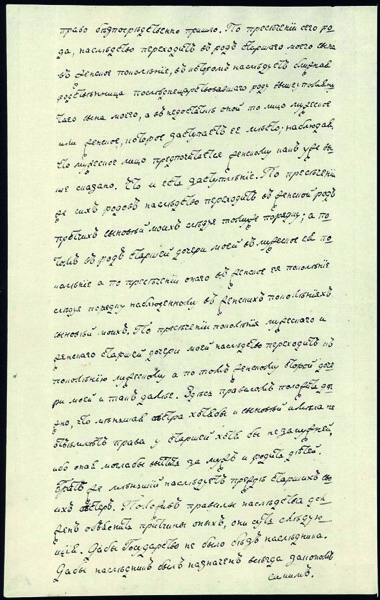 право безпосредственно пришло. По пресечении сего ро-
да, наследство переходитъ в родъ старшаго моего сына
въ женское поколѣніе, въ которомъ наслѣдуетъ ближняя
родственница последнецарствовавшаго роду выше-помяну-
таго сына моего, а въ недостаткѣ оной то лицо мужеское
или женское, которое заступаетъ ее мѣсто; наблюдая,
что мужеское лицо предпочитается женскому какъ уже вы-
ше сказано. Что и есть заступленіе. По пресеченіи
же сихъ родовъ наслѣдство переходитъ в женской родъ
протчихъ сыновей моихъ следуя томуже порядку; а по-
томъ въ родъ старшей дочери моей въ мужеское ея по-
колѣніе а по пресѣченіи онаго въ женское ея поколѣніе
следуя порядку наблюденному въ женскихъ поколѣніяхъ
сыновей моихъ. По пресѣченіи поколѣнія мужескаго и
женскаго старшей дочери моей наследство переходитъ къ
поколѣнію мужескому а по томъ женскому второй доче-
ри моей и такъ далѣе. Здесь правиломъ положить дол-
жно, что меньшая сестра хотябы и сыновей имела не
отъемлетъ права у старшей хотя бы не замужней
ибо оная моглабы выйти за мужъ и родить дѣтей.
Братъ же меньшій наследуетъ прежде старшихъ сво-
ихъ сестръ. Положивъ правилы наследства дол-
женъ объяснить причины оныхъ, они суть слѣдую-
щія. Дабы Государство не было безъ наслѣдника.
Дабы наслѣдникъ былъ назначенъ всегда закономъ
самимъ.